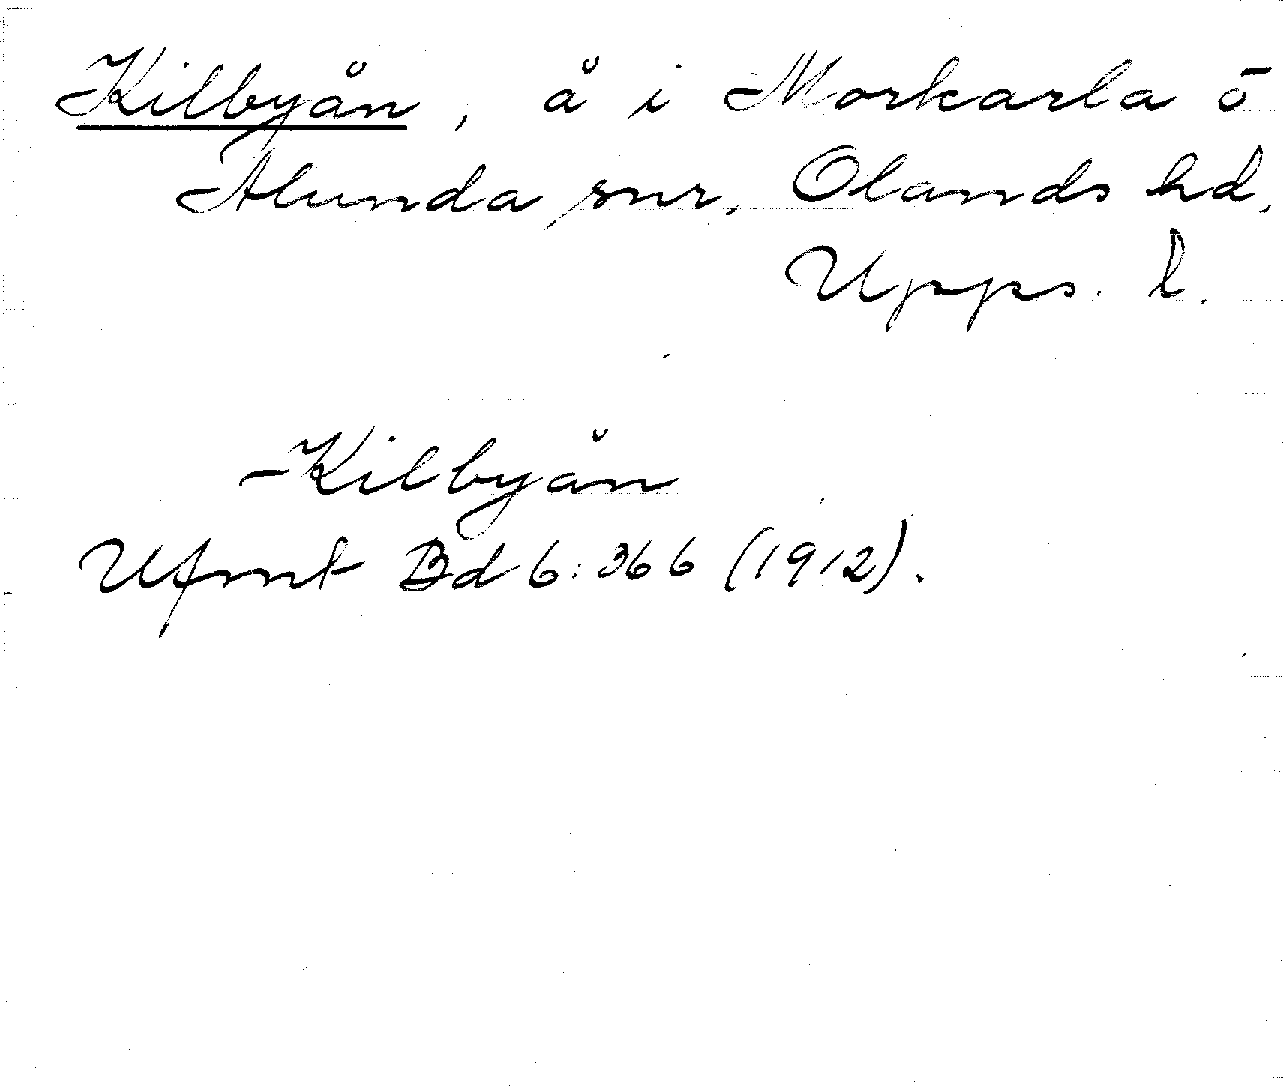 Kilbyån, å i Morkarla o
Alunda snr, Olands hd,
Upps. l.
Kilbyån
Ufmt Bd 6: 366 (1912).